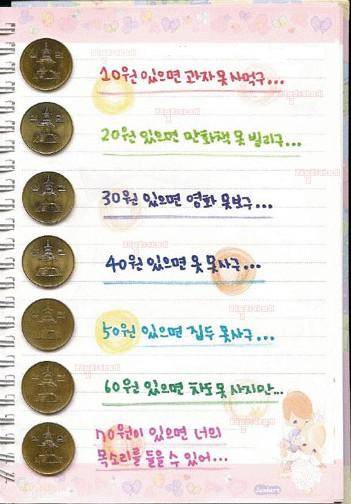 10원 있으면 과자 못 사먹구...
20원 있으면 만화책 못 빌리구...
30원 있으면 영화 못보구...
40원 있으면 옷 못사구...
50원 있으면 집두 못사구...
60원 있으면 차도 못 사지만...
70원이 있으면 너의
목소리를 들을 수 있어...